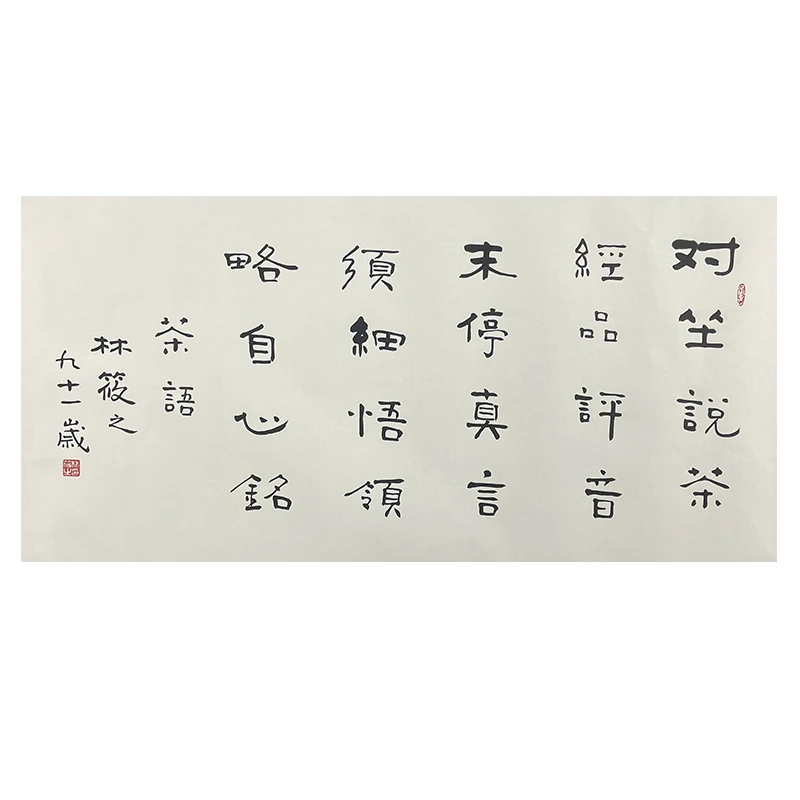 对坐說茶
經品評音
末停真言
須細悟領
略自心銘
茶語
林筱之
九十一歲